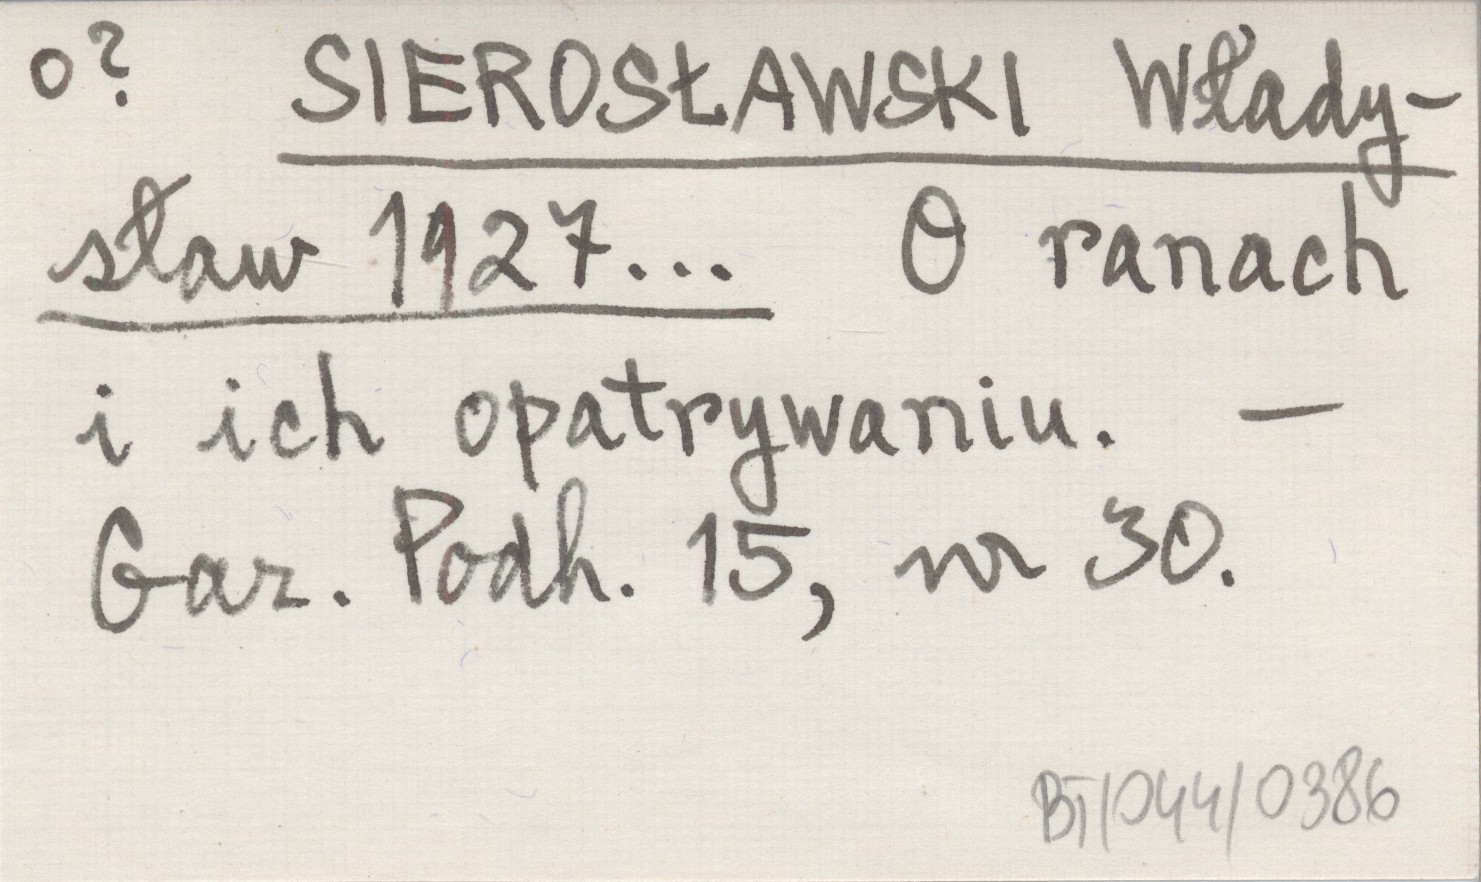 o? SIEROSŁAWSKI Włady-
sław 1927... O ranach
i ich opatrywaniu. —
Gaz. Podh. 15, nr 30.
BT/044/0386